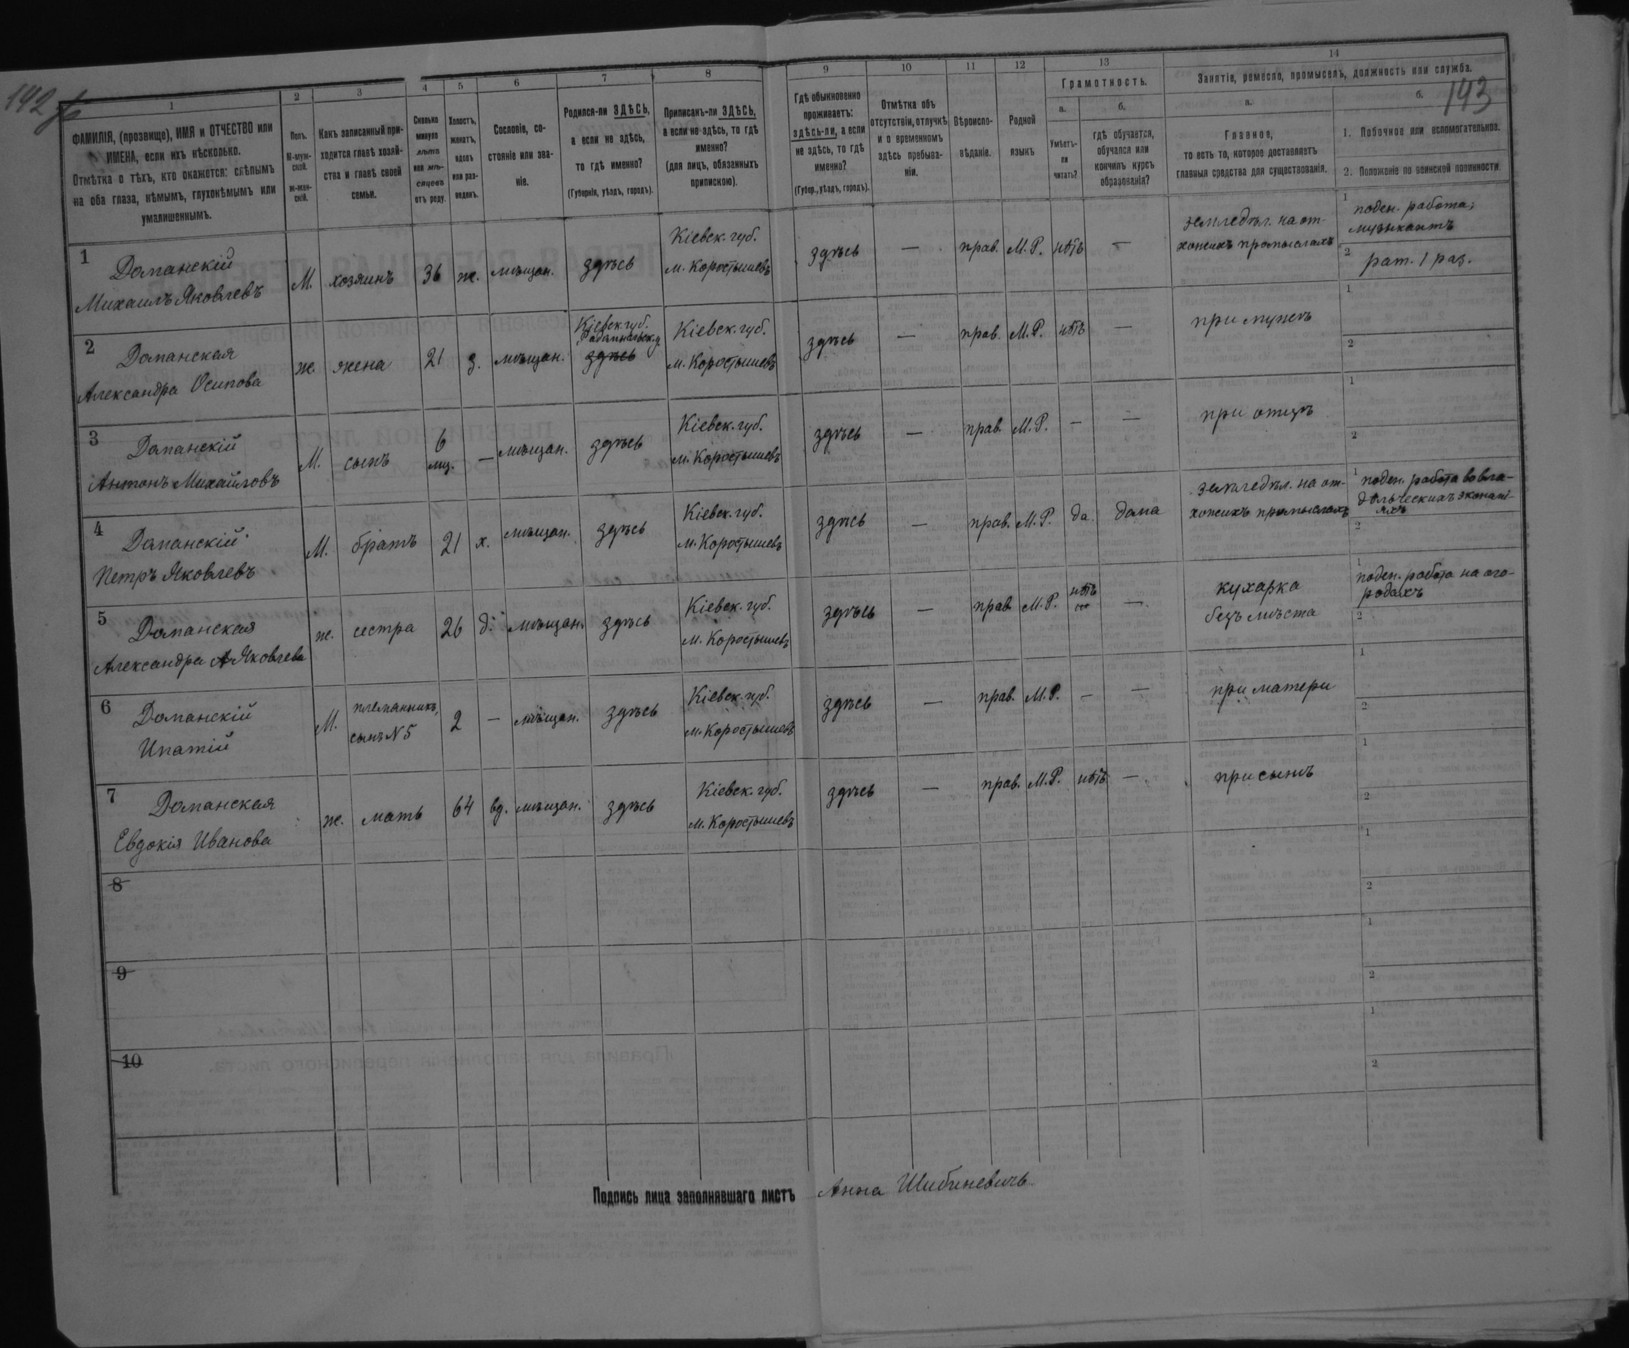 142 об
143
1
2
3
4
5
6
7
8
9
10
11
12
13
14
ФАМИЛІЯ, (прозвище), ИМЯ и ОТЧЕСТВО или
ИМЕНА, если ихъ нѣсколько.
Отмѣтка о тѣхъ, кто окажется: слѣпымъ
на оба глаза, нѣмымъ, глухонѣмымъ или
умалишеннымъ.
Полъ.
М-муж-
ской.
ж-жен-
скій.
Какъ записанный при-
ходится главѣ хозяй-
ства и главѣ своей
семьи.
Сколько
минуло
лѣтъ
или мѣ-
сяцевъ
отъ роду.
Холостъ,
женатъ,
вдовъ
или раз-
веденъ.
Сословіе, со-
стояніе или зва-
ніе.
Родился-ли ЗДѢСЬ,
а если не здѣсь,
то гдѣ именно?
(Губернія, уѣздъ, городъ).
Приписанъ-ли ЗДѢСЬ,
а если не-здѣсь, то гдѣ
именно?
(для лицъ, обязанныхъ
припискою).
Гдѣ обыкновенно
проживаетъ:
здѣсь-ли, а если
не здѣсь, то гдѣ
именно?
(Губер., уѣздъ, городъ).
Отмѣтка объ
отсутствіи, отлучкѣ
и о временномъ
здѣсь пребыва-
ніи.
Вѣроиспо-
вѣданіе.
Родной
языкъ
Грамотность.
а.
Умѣетъ-
ли
читать?
б.
гдѣ обучается,
обучался или
кончилъ курсъ
образованія?
Занятіе, ремесло, промыселъ, должность или служба.
а.
Главное,
то есть то, которое доставляетъ
главныя средства для существованія.
б.
1. Побочное или вспомогательное.
2. Положеніе по воинской повинности.
1
Доманскій
Михаилъ Яковлевъ
М.
хозяинъ
36
ж.
мѣщан.
здѣсь
Кіевск. губ.
м. Коростышевъ
здѣсь
—
прав.
М.Р.
нѣтъ
—
земледѣл. на от-
хожихъ промыслахъ
1
поден. работа;
музыкантъ
2
рат. 1 раз.
2
Доманская
Александра Осипова
ж.
жена
21
з.
мѣщан.
Кіевск. губ.
Радомысльск. у
здѣсь
Кіевск. губ.
м. Коростышевъ
здѣсь
—
прав.
М.Р.
нѣтъ
—
при мужѣ
1
2
3
Доманскій
Антонъ Михайловъ
М.
сынъ
6
мц.
—
мѣщан.
здѣсь
Кіевск. губ.
м. Коростышевъ
здѣсь
—
прав.
М.Р.
—
—
при отцѣ
1
2
4
Доманскій
Петръ Яковлевъ
М.
братъ
21
х.
мѣщан.
здѣсь
Кіевск. губ.
м. Коростышевъ
здѣсь
—
прав.
М.Р.
да
дома
земледѣл. на от-
хожихъ промыслахъ
1
поден. работа во вла-
дѣльческихъ экономі-
яхъ
2
5
Доманская
Александра Яковлева
ж.
сестра
26
д.
мѣщан.
здѣсь
Кіевск. губ.
м. Коростышевъ
здѣсь
—
прав.
М.Р.
нѣтъ
—
кухарка
безъ мѣста
1
поден. работа на ого-
родахъ
2
6
Доманскій
Ипатій
М.
племянникъ,
сынъ N 5
2
—
мѣщан.
здѣсь
Кіевск. губ.
м. Коростышевъ
здѣсь
—
прав.
М.Р.
—
—
при матери
1
2
7
Доманская
Евдокія Иванова
ж.
мать
64
вд.
мѣщан.
здѣсь
Кіевск. губ.
м. Коростышевъ
здѣсь
—
прав.
М.Р.
нѣтъ
—
при сынѣ
1
2
8
1
2
9
1
2
10
1
2
Подпись лица заполнявшаго листъ
Анна Шибиневичъ